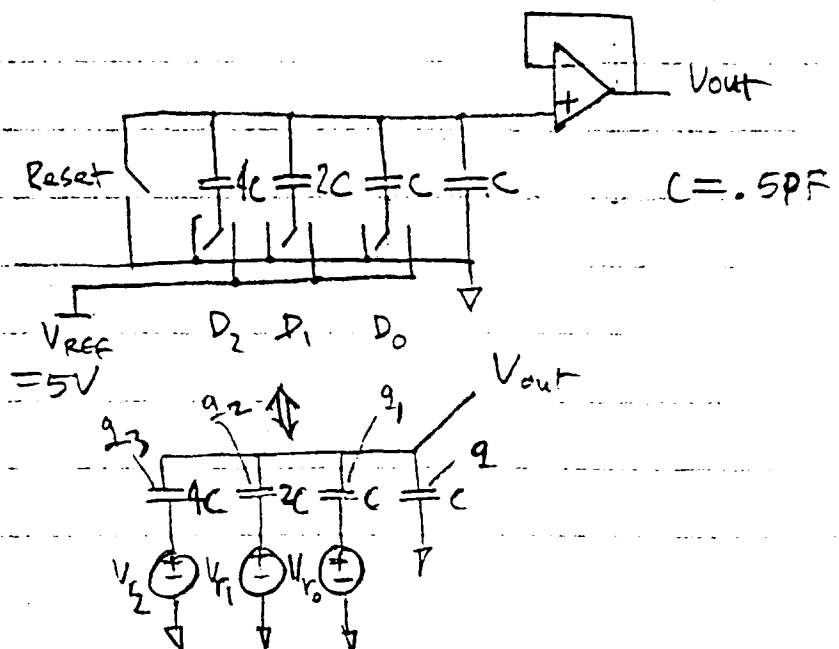 Vout
Reset
4C 2C C C
C = .5PF
VREF
= 5V
D2 D1 D0
Vout
q3 q2 q1 q
4C 2C C C
Vr2 Vr1 Vr0